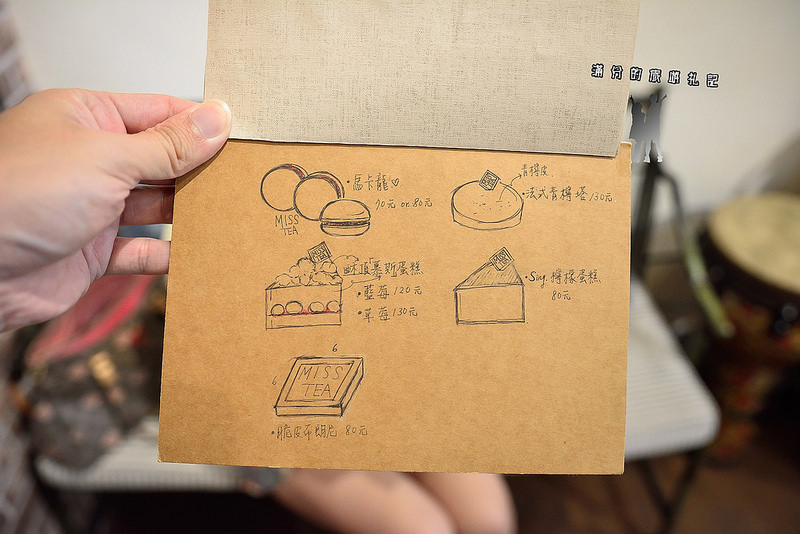 滿分的旅遊札記
•馬卡龍♡
70元 or 80元
MISS
TEA
青檸皮
•法式青檸塔 130元
酥頂慕斯蛋糕
•藍莓 120元
•草莓 130元
•Sug. 檸檬蛋糕
80元
6
6
MISS
TEA
•脆皮布朗尼 80元